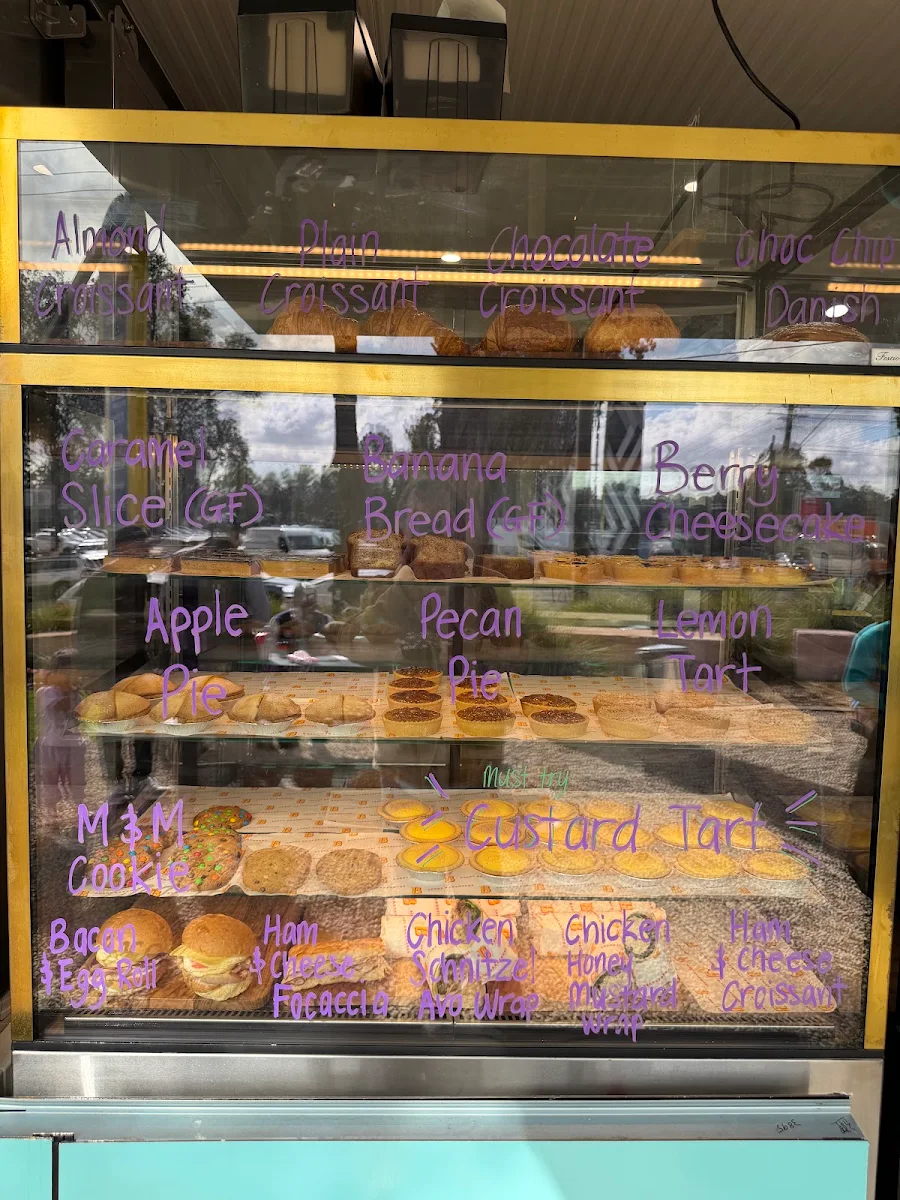 Almond
Croissant
Plain
Croissant
Chocolate
Croissant
Choc Chip
Danish
Caramel
Slice (GF)
Banana
Bread (GF)
Berry
Cheesecake
Apple
Pie
Pecan
Pie
Lemon
Tart
M & M
Cookie
Must try
Custard Tart
Bacon
& Egg Roll
Ham
& Cheese
Focaccia
Chicken
Schnitzel
Avo Wrap
Chicken
Honey
Mustard
Wrap
Ham
& Cheese
Croissant